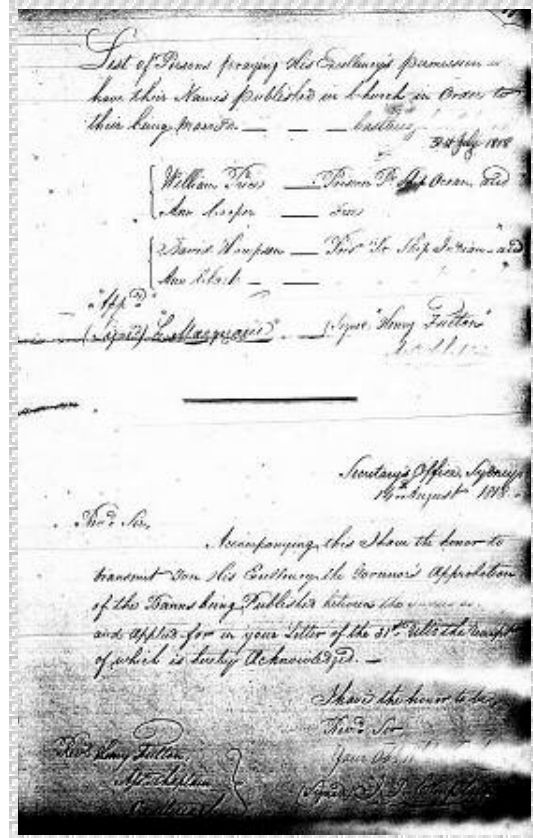 List of Persons praying His Excellency's permission to
have their Names Published in Church in Order to
their being Married — — — Castlereagh
31st July 1818
William — Prisoner Pr Ship Ocean, and
Ann Cooper — Free
David Thompson — Pris Pr Ship Indian and
Ann Clark —
"Appd"
(Signed) "L. Macquarie" (Signed "Henry Fulton"
Secretary's Office, Sydney
14th August 1818
Revd Sir,
Accompanying this I have the honor to
transmit You His Excellency the Governor's Approbation
of the Banns being Published between the
and Applied for in your Letter of the 31st Ulto the receipt
of which is hereby Acknowledged. —
I have the honor to be,
Revd Sir
Your
Revd Henry Fulton,
Asst Chaplain
(Signed) J. T. Campbell